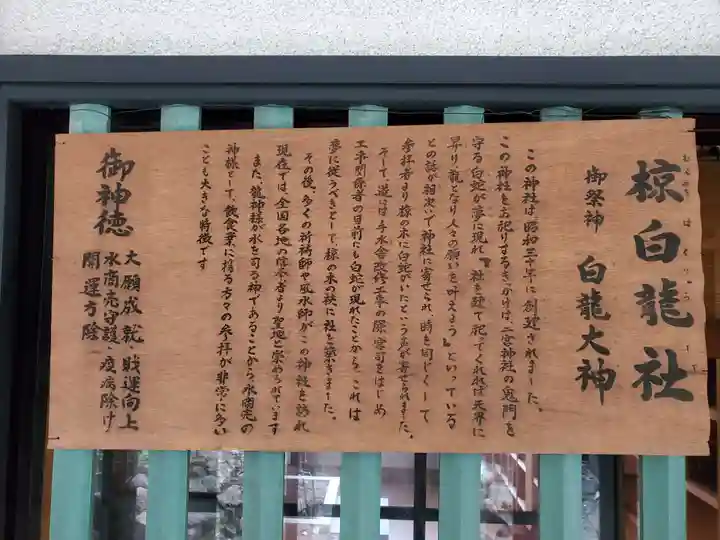 椋白龍社
むくのきはくりゅうしゃ
御祭神 白龍大神
この神社は、昭和三十年に創建されました。
この神社をお祀りするきっかけは、二宮神社の鬼門を
守る白蛇が夢に現れ『社を建て祀ってくれれば天界に
昇り、龍となり人々の願いを叶えよう』といっている
との話が相次いで神社に寄せられ、時を同じくして
参拝者より椋の木に白蛇がいたという声が寄せられました。
そして、遂には手水舎改修工事の際、宮司をはじめ
工事関係者の目前にも白蛇が現れたことから、これは
夢に従うべきとして、椋の木の袂に社を築きました。
その後、多くの祈祷師や風水師がこの神社を訪れ
現在では、全国各地の信奉者より聖地と崇められています
また、龍神様が水を司る神であることから、水商売の
神様として、飲食業に携る方々の参拝が非常に多い
ことも大きな特徴です
御神徳
大願成就・財運向上
水商売守護・疫病除け
開運方除